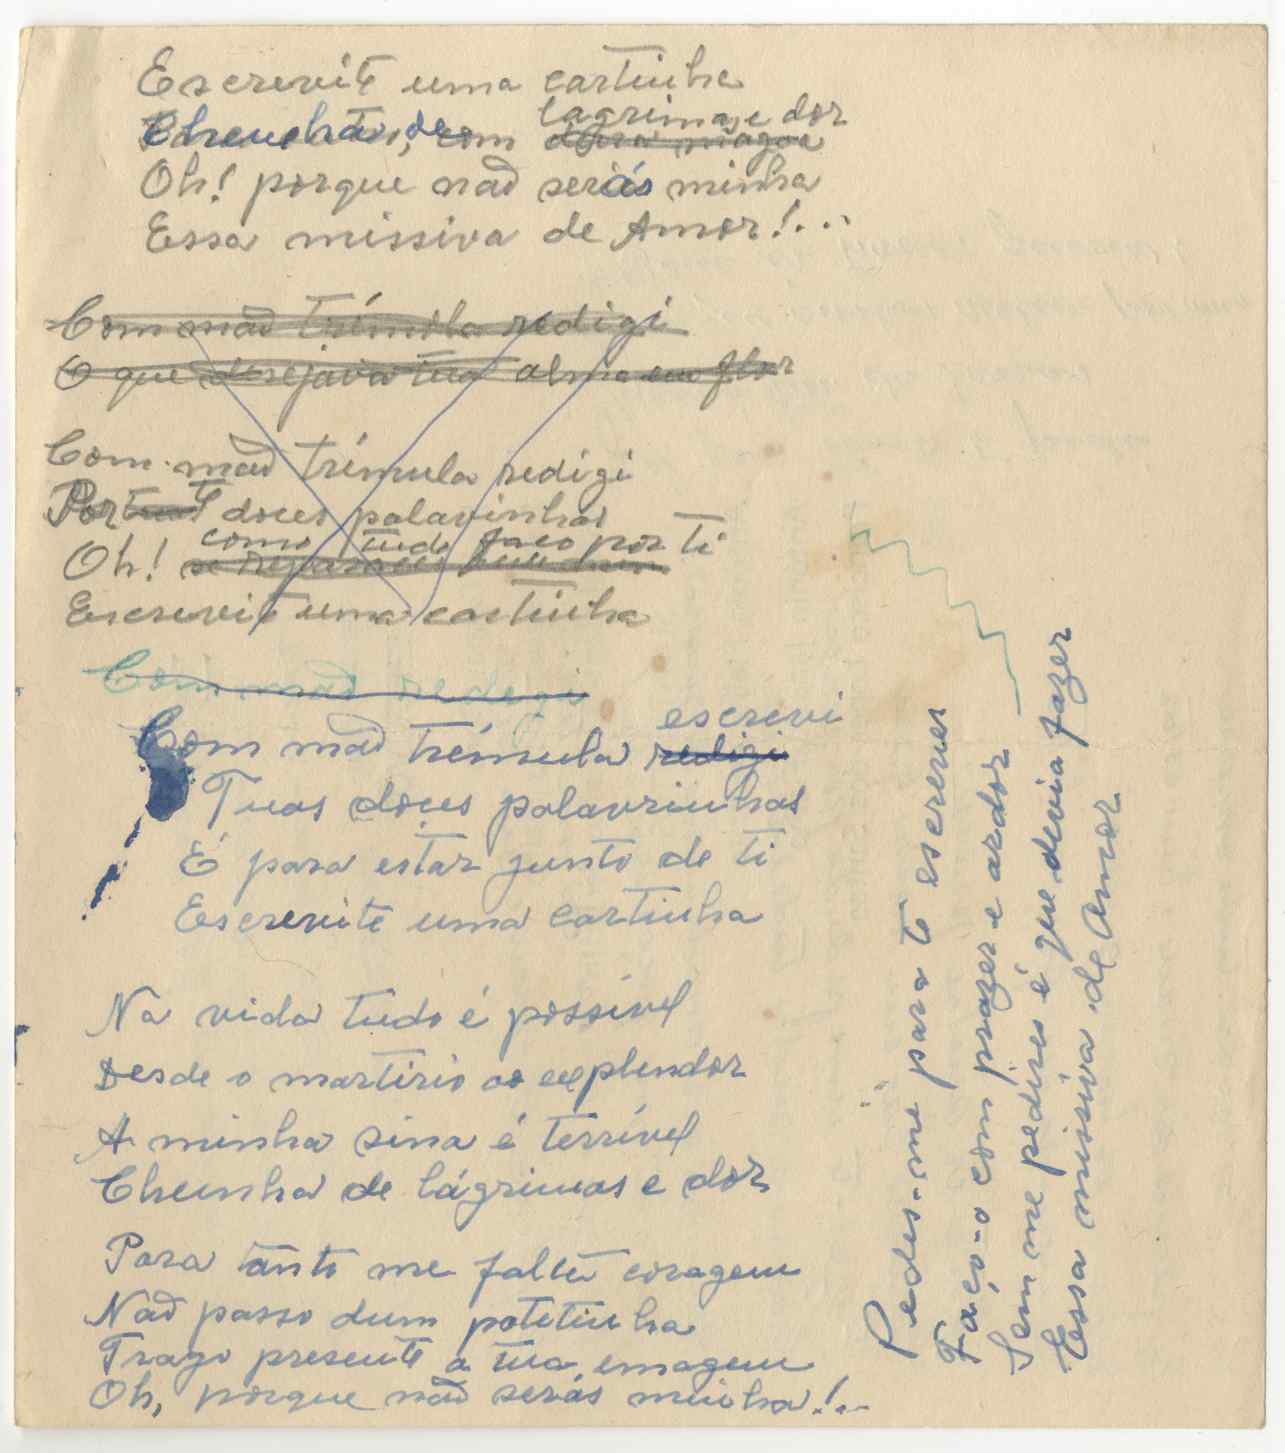 Escrevite uma cartinha
Cheinha, de com lagrimas e dor
Oh! porque não serás minha
Essa missiva de Amor!...
Com mão trémola redigi
O que desejava tua alma em flor
Com mão trémula redigi
Por doces palavinhas
Oh! como tudo faço por ti
Escrevite uma cartinha
Com mão redegi
Com mão trémula redigi escrevi
Tuas doces palavrinhas
É para estar junto de ti
Escrevite uma cartinha
Na vida tudo é possível
Desde o martirio ao explendor
A minha sina é terrível
Cheinha de lágrimas e dor
Para tanto me falta coragem
Não passo dum potetinha
Trago presente a tua emagem
Oh, porque não serás minha!...
Pedes-me para te escrever
Faço-o com prazer e ardor
Sem me pedires é que devia fazer
Essa missiva de Amor